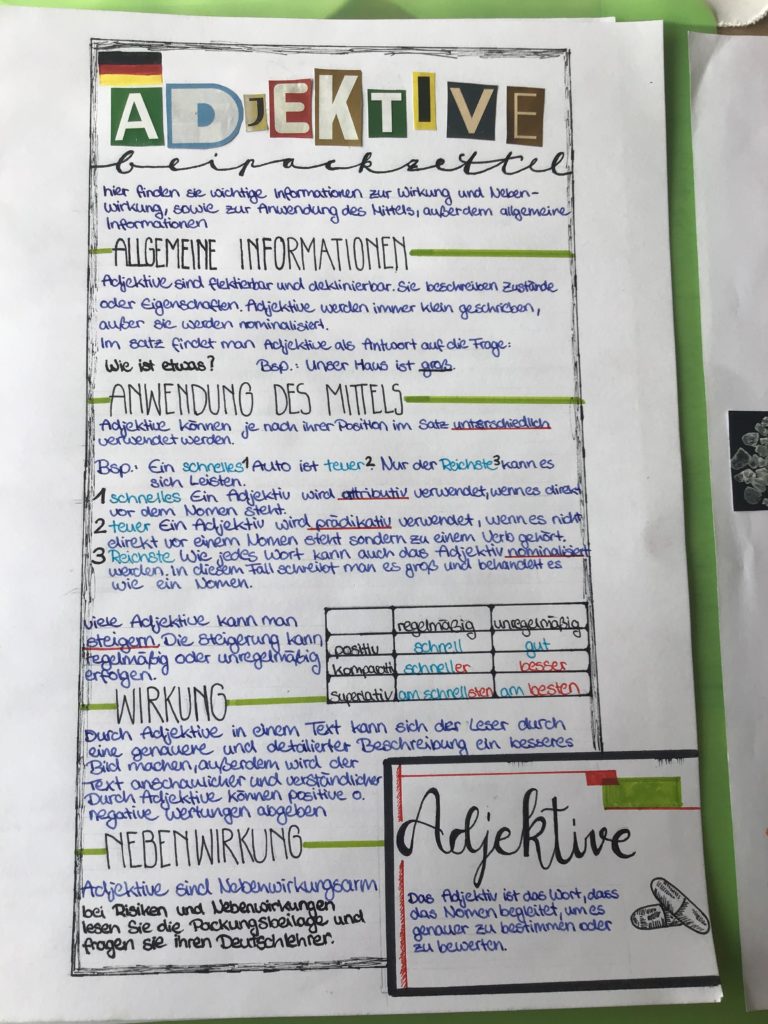 ADJEKTIVE
beipackzettel
hier finden sie wichtige Informationen zur Wirkung und Neben-
wirkung, sowie zur Anwendung des Mittels, außerdem allgemeine
Informationen
ALLGEMEINE INFORMATIONEN
Adjektive sind flektierbar und deklinierbar. Sie beschreiben Zustände
oder Eigenschaften. Adjektive werden immer klein geschrieben,
außer sie werden nominalisiert.
Im Satz findet man Adjektive als Antwort auf die Frage:
Wie ist etwas? Bsp.: Unser Haus ist groß.
ANWENDUNG DES MITTELS
Adjektive können je nach ihrer Position im Satz unterschiedlich
verwendet werden.
Bsp.: Ein schnelles1 Auto ist teuer2. Nur der Reichste3 kann es
sich Leisten.
1 schnelles Ein Adjektiv wird attributiv verwendet, wenn es direkt
vor dem Nomen steht.
2 teuer Ein Adjektiv wird prädikativ verwendet, wenn es nicht
direkt vor einem Nomen steht sondern zu einem Verb gehört.
3 Reichste Wie jedes Wort kann auch das Adjektiv nominalisiert
werden. In diesem Fall schreibt man es groß und behandelt es
wie ein Nomen.
viele Adjektive kann man
steigern. Die Steigerung kann
regelmäßig oder unregelmäßig
erfolgen.
regelmäßig unregelmäßig
positiv schnell gut
komparativ schneller besser
superlativ am schnellsten am besten
WIRKUNG
Durch Adjektive in einem Text kann sich der Leser durch
eine genauere und detailierter Beschreibung ein besseres
Bild machen, außerdem wird der
Text anschaulicher und verständlicher
Durch Adjektive können positive o.
negative Wertungen abgeben
NEBENWIRKUNG
Adjektive sind Nebenwirkungsarm
bei Risiken und Nebenwirkungen
lesen Sie die Packungsbeilage und
fragen sie ihren Deutschlehrer.
Adjektive
Das Adjektiv ist das Wort, dass
das Nomen begleitet, um es
genauer zu bestimmen oder
zu bewerten.